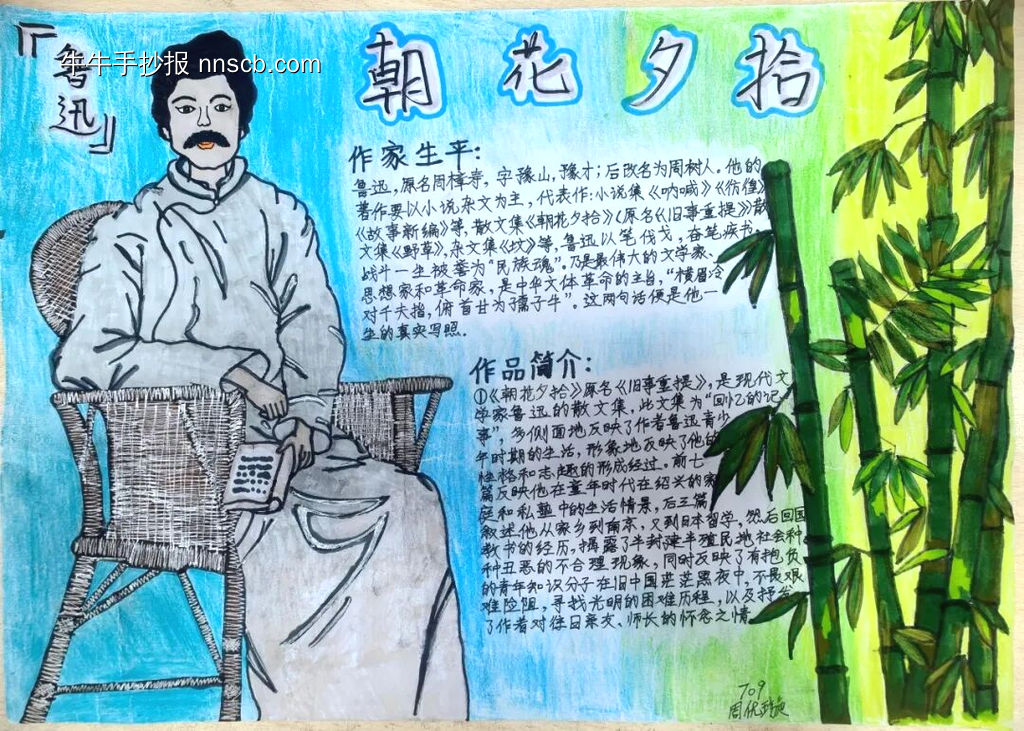 『鲁迅』
牛牛手抄报 nnscb.com
朝花夕拾
作家生平:
鲁迅,原名周樟寿,字豫山,豫才;后改名为周树人。他的
著作要以小说杂文为主,代表作:小说集《呐喊》《彷徨》
《故事新编》等,散文集《朝花夕拾》(原名《旧事重提》)散
文集《野草》,杂文集《坟》等.鲁迅以笔伐戈,奋笔疾书,
战斗一生被誉为“民族魂”.乃是最伟大的文学家、
思想家和革命家,是中华文体革命的主旨,“横眉冷
对千夫指,俯首甘为孺子牛”.这两句话便是他一
生的真实写照.
作品简介:
①《朝花夕拾》原名《旧事重提》,是现代文
学家鲁迅的散文集,此文集为“回忆的记
事”,多侧面地反映了作者鲁迅青少
年时期的生活,形象地反映了他的
性格和志趣的形成经过.前七
篇反映他在童年时代在绍兴的家
庭和私塾中的生活情景,后三篇
叙述他从家乡到南京,又到日本留学,然后回国
教书的经历,揭露了半封建半殖民地社会种
种丑恶的不合理现象,同时反映了有抱负
的青年知识分子在旧中国茫茫黑夜中,不畏艰
难险阻,寻找光明的困难历程,以及抒发
了作者对往日亲友、师长的怀念之情.
709
周优